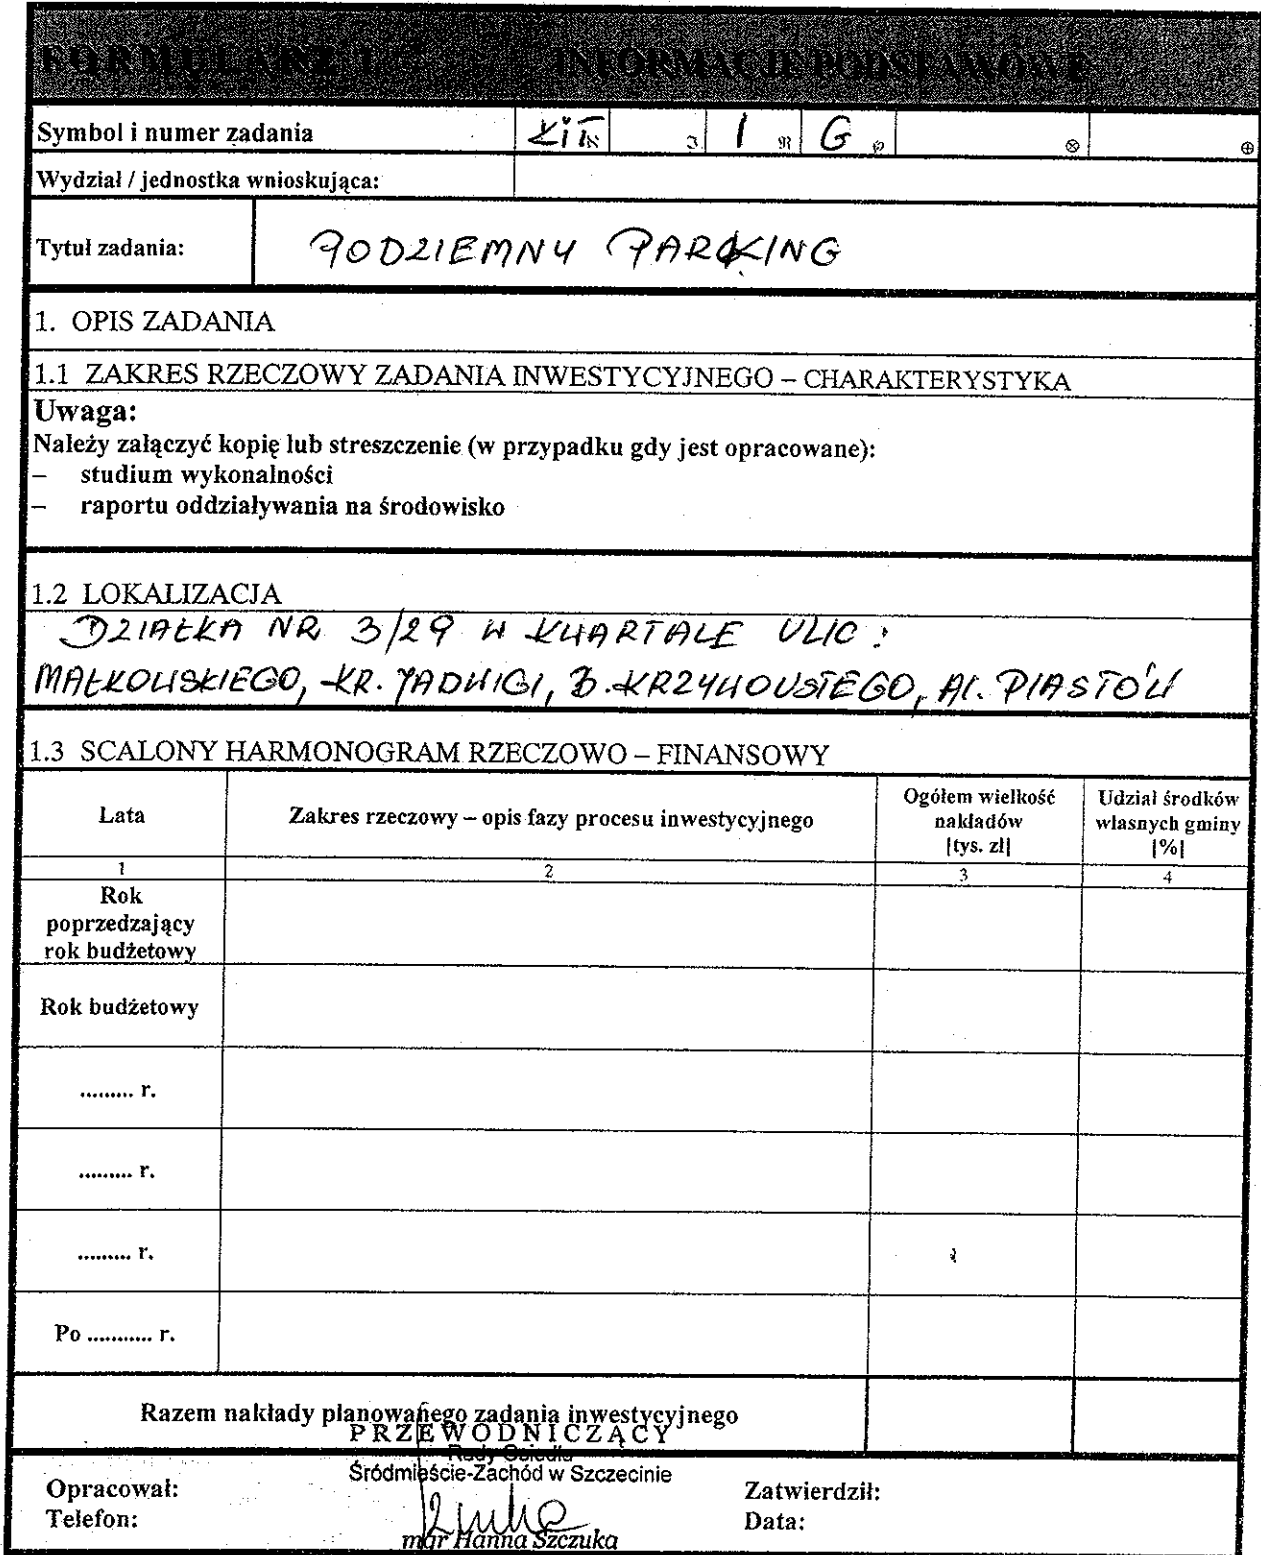 FORMULARZ 1 INFORMACJE PODSTAWOWE
Symbol i numer zadania I G
Wydział / jednostka wnioskująca:
Tytuł zadania: PODZIEMNY PARKING
1. OPIS ZADANIA
1.1 ZAKRES RZECZOWY ZADANIA INWESTYCYJNEGO – CHARAKTERYSTYKA
Uwaga:
Należy załączyć kopię lub streszczenie (w przypadku gdy jest opracowane):
– studium wykonalności
– raportu oddziaływania na środowisko
1.2 LOKALIZACJA
DZIAŁKA NR 3/29 W KWARTALE ULIC:
MAŁKOWSKIEGO, KR. JADWIGI, B. KRZYWOUSTEGO, Al. PIASTÓW
1.3 SCALONY HARMONOGRAM RZECZOWO – FINANSOWY
Lata
Zakres rzeczowy – opis fazy procesu inwestycyjnego
Ogółem wielkość
nakładów
[tys. zł]
Udział środków
własnych gminy
[%]
1 2 3 4
Rok
poprzedzający
rok budżetowy
Rok budżetowy
......... r.
......... r.
......... r.
Po ........... r.
Razem nakłady planowanego zadania inwestycyjnego
PRZEWODNICZĄCY
Rady Osiedla
Śródmieście-Zachód w Szczecinie
mgr Hanna Szczuka
Opracował:
Telefon:
Zatwierdził:
Data: